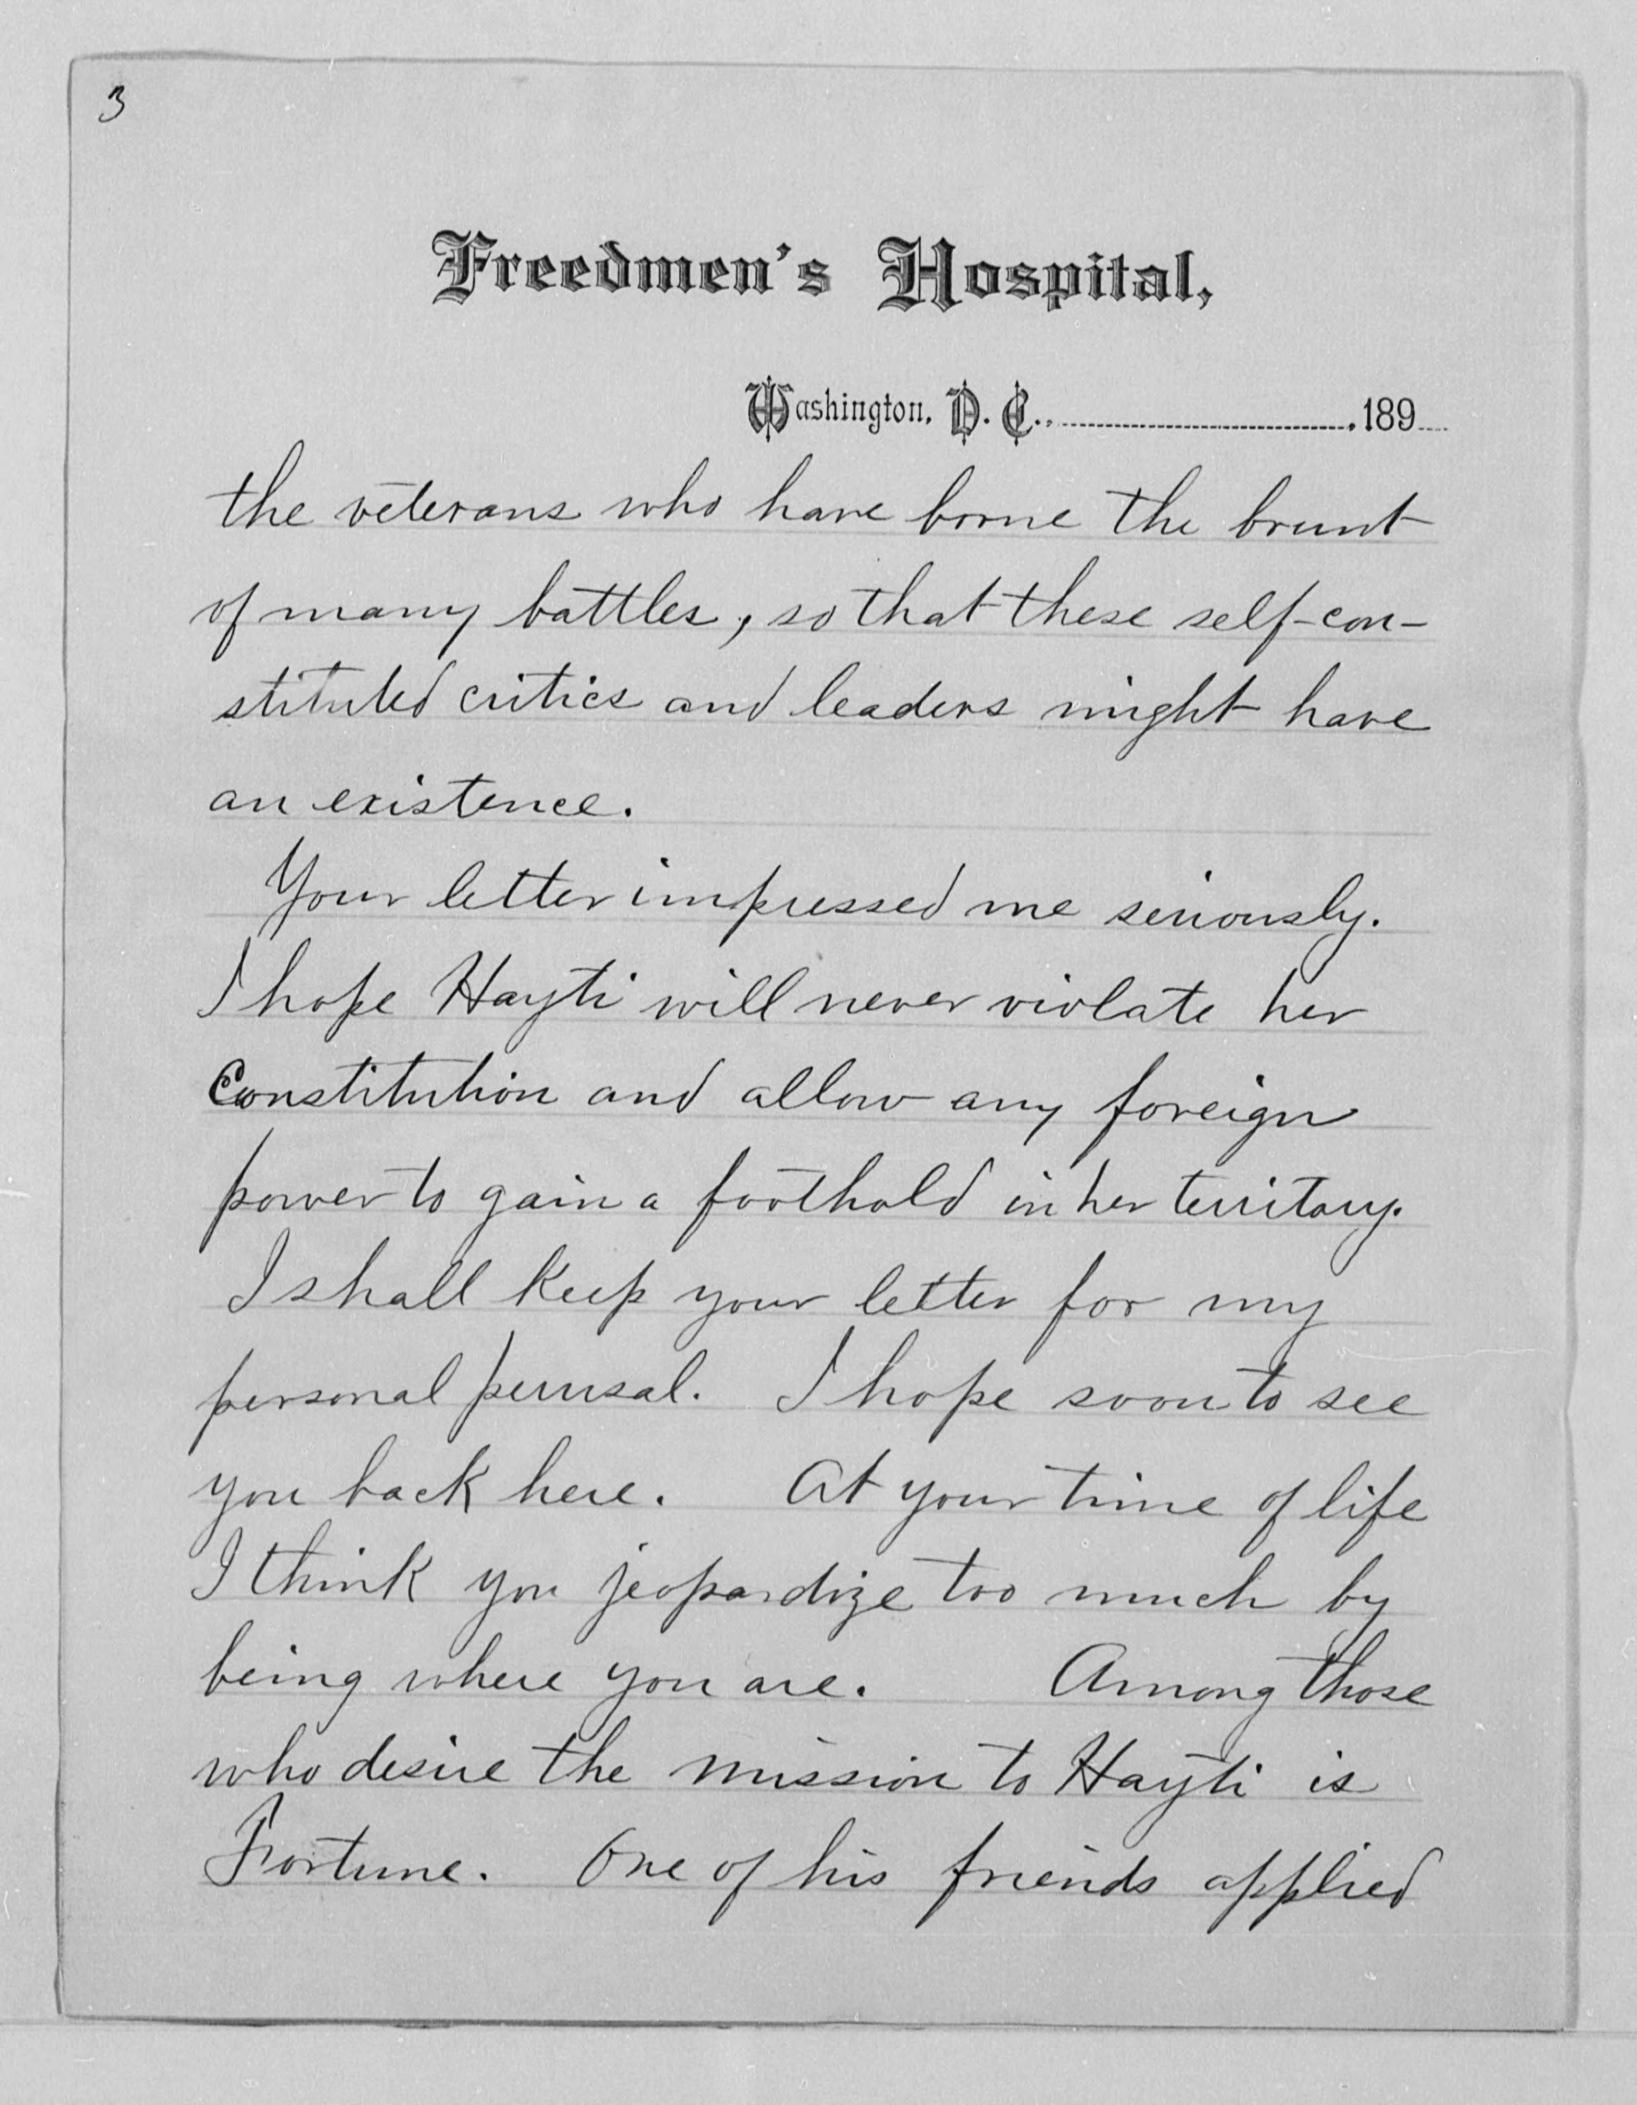 3
Freedmen's Hospital,
Washington, D. C., .189
the veterans who have borne the brunt
of many battles, so that these self-con-
stituted critics and leaders might have
an existence.
Your letter impressed me seriously.
I hope Hayti will never violate her
Constitution and allow any foreign
power to gain a foothold in her territory.
I shall keep your letter for my
personal perusal. I hope soon to see
you back here. At your time of life
I think you jeopardize too much by
being where you are. Among those
who desire the mission to Hayti is
Fortune. One of his friends applied